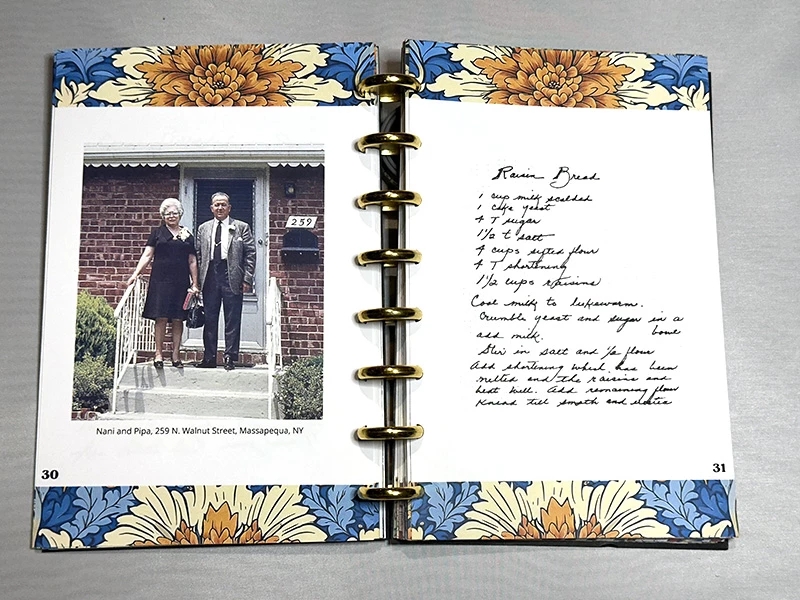 259
Nani and Pipa, 259 N. Walnut Street, Massapequa, NY
30
Raisin Bread
1 cup milk scalded
1 cake yeast
4 T sugar
1½ t salt
4 cups sifted flour
4 T shortening
1½ cups raisins
Cool milk to lukewarm.
Crumble yeast and sugar in a
bowl
add milk.
Stir in salt and ½ flour
Add shortening which has been
melted and the raisins and
beat well. Add remaining flour
Knead till smooth and elastic
31